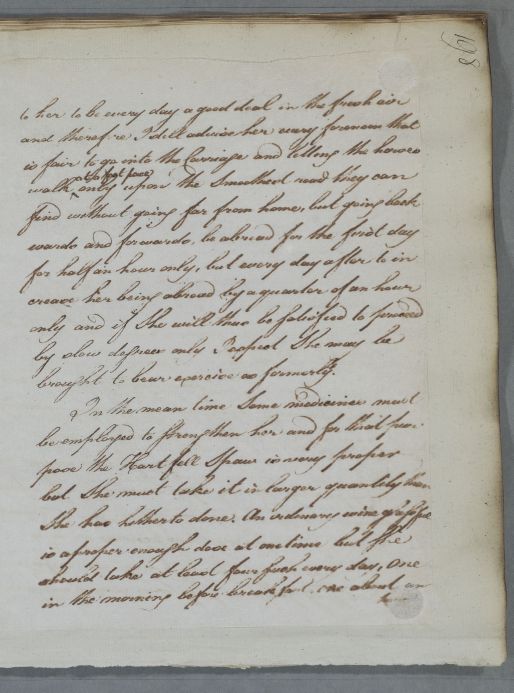 198
to her to be every day a good deal in the fresh air
and therefore I still advise her every forenoon that
is fair to go into the Carriage and letting the horses
walk at a foot pace only upon the smoothest road they can
find without going far from home, but going back
wards and forwards, be abroad for the first day
for half an hour only, but every day after to in
crease her being abroad by a quarter of an hour
only and if She will thus be satisfied to proceed
by slow degrees only I expect She may be
brought to bear exercise as formerly.
In the mean time Some medicines must
be employed to strengthen her and for that pur
pose the Hartfell Spaw is very proper
but She must take it in larger quantity than
She has hitherto done. An ordinary wine glassfull
is a proper enough dose at one time but She
should take at least four such every day, One
in the morning before breakfast, one about an